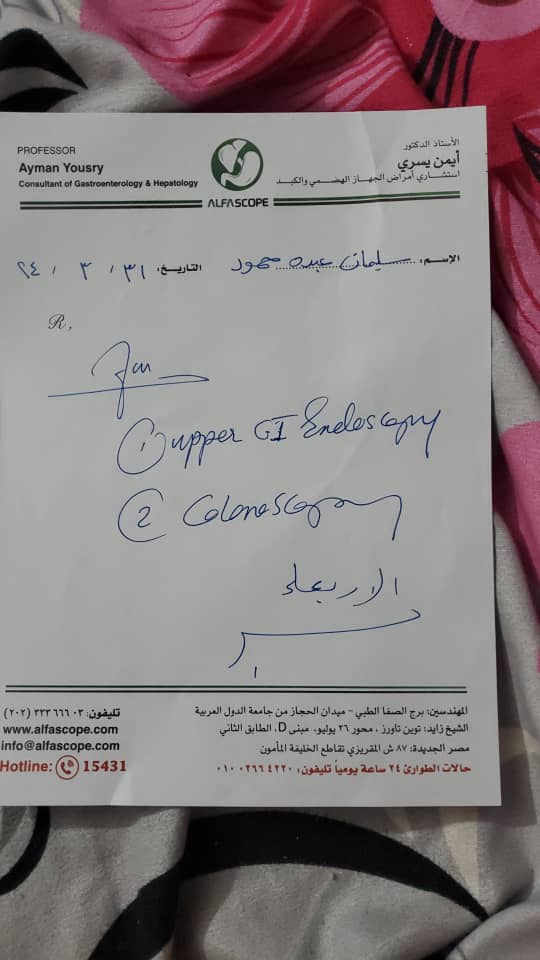 PROFESSOR
Ayman Yousry
Consultant of Gastroenterology & Hepatology
ALFASCOPE
الأستاذ الدكتور
أيمن يسري
استشاري أمراض الجهاز الهضمي والكبد
الإسم: سليمان عبده محمود التاريخ: ٣١ / ٣ / ٢٤
R,
for
① upper GI Endoscopy
② Colonoscopy
الاربعاء
المهندسين: برج الصفا الطبي - ميدان الحجاز من جامعة الدول العربية
الشيخ زايد: توين تاورز ، محور ٢٦ يوليو، مبنى D، الطابق الثاني
مصر الجديدة: ٨٧ ش المقريزي تقاطع الخليفة المأمون
حالات الطوارئ ٢٤ ساعة يومياً تليفون: ٠١٠ ٠٢٦٦ ٤٢٢٠
تليفون: ٠٣ ٦٦٦ ٣٣٣ (٢٠٢)
www.alfascope.com
info@alfascope.com
Hotline: 15431